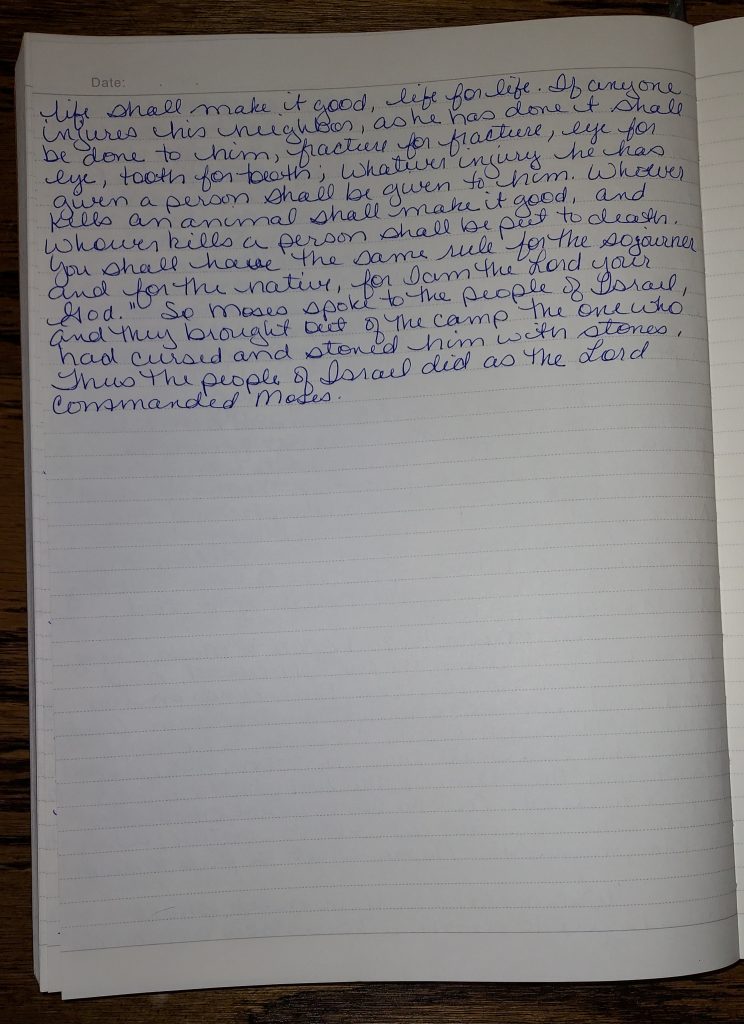 Date:
life shall make it good, life for life. If anyone
injures his neighbor, as he has done it shall
be done to him, fracture for fracture, eye for
eye, tooth for tooth; whatever injury he has
given a person shall be given to him. Whoever
kills an animal shall make it good, and
whoever kills a person shall be put to death.
You shall have the same rule for the sojourner
and for the native, for I am the Lord your
God." So Moses spoke to the people of Israel,
and they brought out of the camp the one who
had cursed and stoned him with stones.
Thus the people of Israel did as the Lord
commanded Moses.